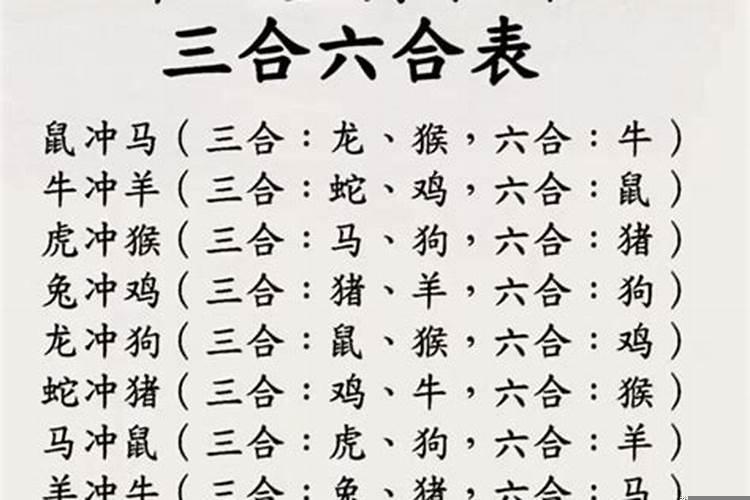 三合六合表
鼠冲马(三合:龙、猴,六合:牛)
牛冲羊(三合:蛇、鸡,六合:鼠)
虎冲猴(三合:马、狗,六合:猪)
兔冲鸡(三合:猪、羊,六合:狗)
龙冲狗(三合:鼠、猴,六合:鸡)
蛇冲猪(三合:鸡、牛,六合:猴)
马冲鼠(三合:虎、狗,六合:羊)
羊冲牛(三合:兔、猪,六合:马)